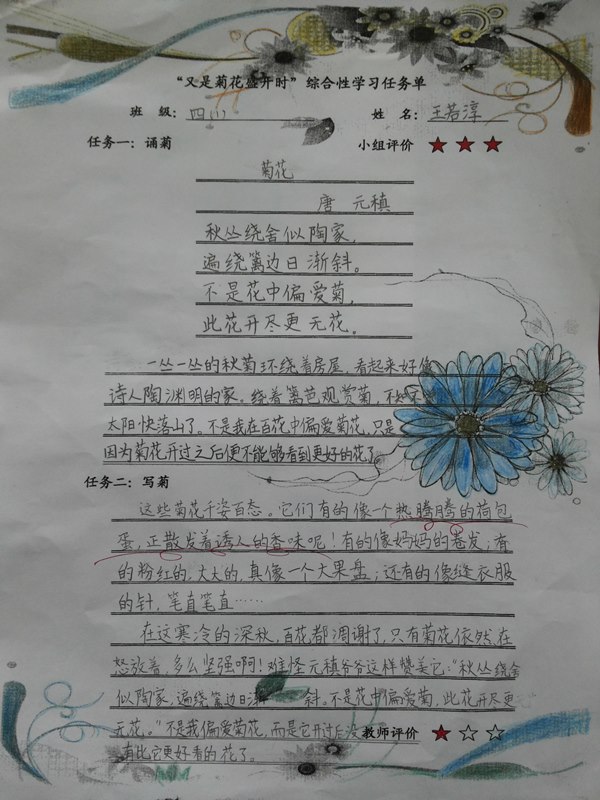 “又是菊花盛开时”综合性学习任务单
班 级：四(1) 姓 名：王若淳
任务一：诵菊 小组评价 ★★★
菊花
唐 元稹
秋丛绕舍似陶家，
遍绕篱边日渐斜。
不是花中偏爱菊，
此花开尽更无花。
一丛一丛的秋菊环绕着房屋，看起来好像
诗人陶渊明的家。绕着篱笆观赏菊，不知不
太阳快落山了。不是我在百花中偏爱菊花，只是
因为菊花开过之后便不能够看到更好的花了
任务二：写菊
这些菊花千姿百态。它们有的像一个热腾腾的荷包
蛋，正散发着诱人的香味呢！有的像妈妈的卷发；有
的粉红的，大大的，真像一个大果盘；还有的像缝衣服
的针，笔直笔直……
在这寒冷的深秋，百花都凋谢了，只有菊花依然在
怒放着，多么坚强啊！难怪元稹爷爷这样赞美它：“秋丛绕舍
似陶家，遍绕篱边日渐斜。不是花中偏爱菊，此花开尽更
无花。”不是我偏爱菊花，而是它开过后没 教师评价 ★☆☆
有比它更好看的花了。